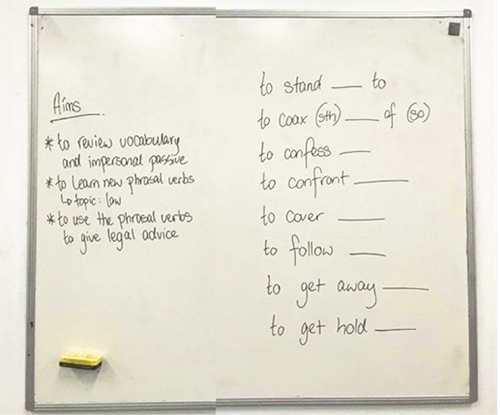 Aims
* to review vocabulary
and impersonal passive
* to learn new phrasal verbs
↳ topic: law
* to use the phrasal verbs
to give legal advice
to stand ___ to
to coax (sth) ___ of (so)
to confess ___
to confront ___
to cover ___
to follow ___
to get away ___
to get hold ___